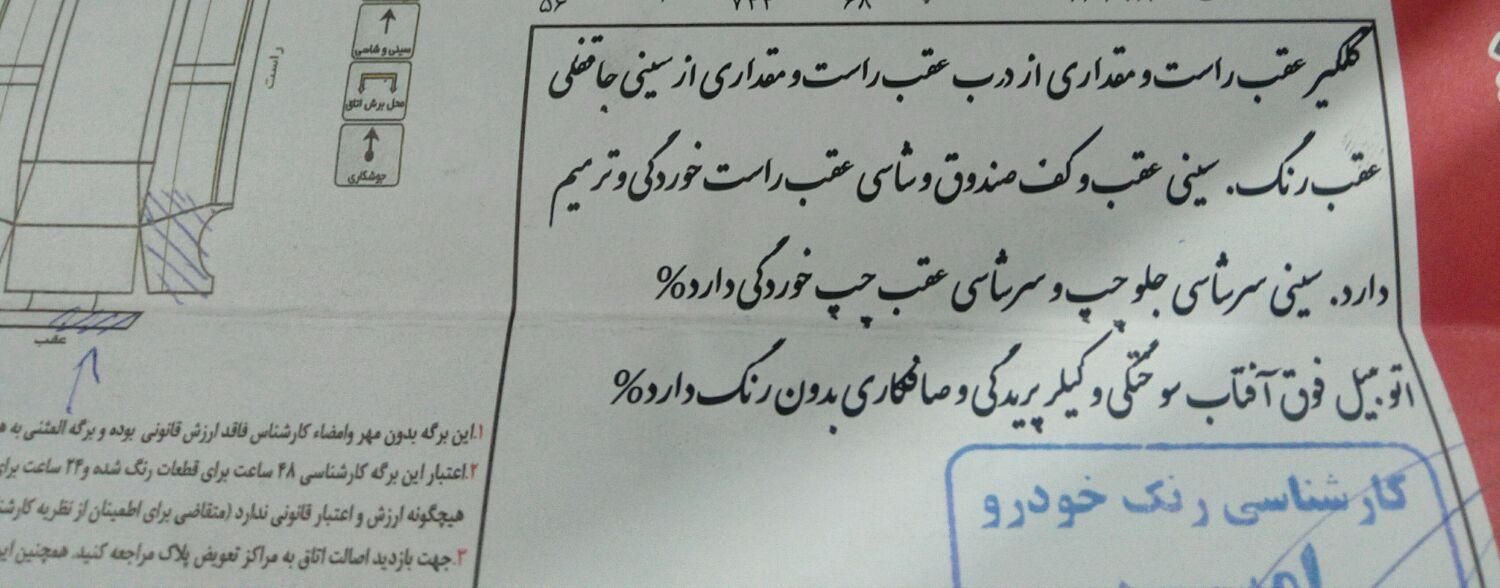 ۵۶ ۷۲۲ ۶۸
گلگیر عقب راست و مقداری از درب عقب راست و مقداری از سینی جاقفلی
عقب رنگ. سینی عقب و کف صندوق و شاسی عقب راست خوردگی و ترمیم
دارد. سینی سرشاسی جلو چپ و سرشاسی عقب چپ خوردگی دارد%
اتومبیل فوق آفتاب سوختگی و کیلر پریدگی و صافکاری بدون رنگ دارد%
کارشناسی رنگ خودرو
راست
سینی و شاسی
محل برش اتاق
جوشکاری
عقب
۱.این برگه بدون مهر وامضاء کارشناس فاقد ارزش قانونی بوده و برگه المثنی به
۲.اعتبار این برگه کارشناسی ۴۸ ساعت برای قطعات رنگ شده و۲۴ ساعت برای
هیچگونه ارزش و اعتبار قانونی ندارد (متقاضی برای اطمینان از نظریه
۳.جهت بازدید اصالت اتاق به مراکز تعویض پلاک مراجعه کنید. همچنین